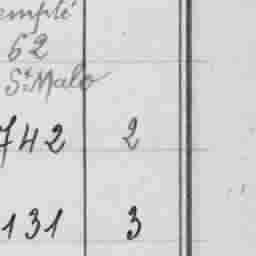 empté
62
St Malo
742 2
131 3